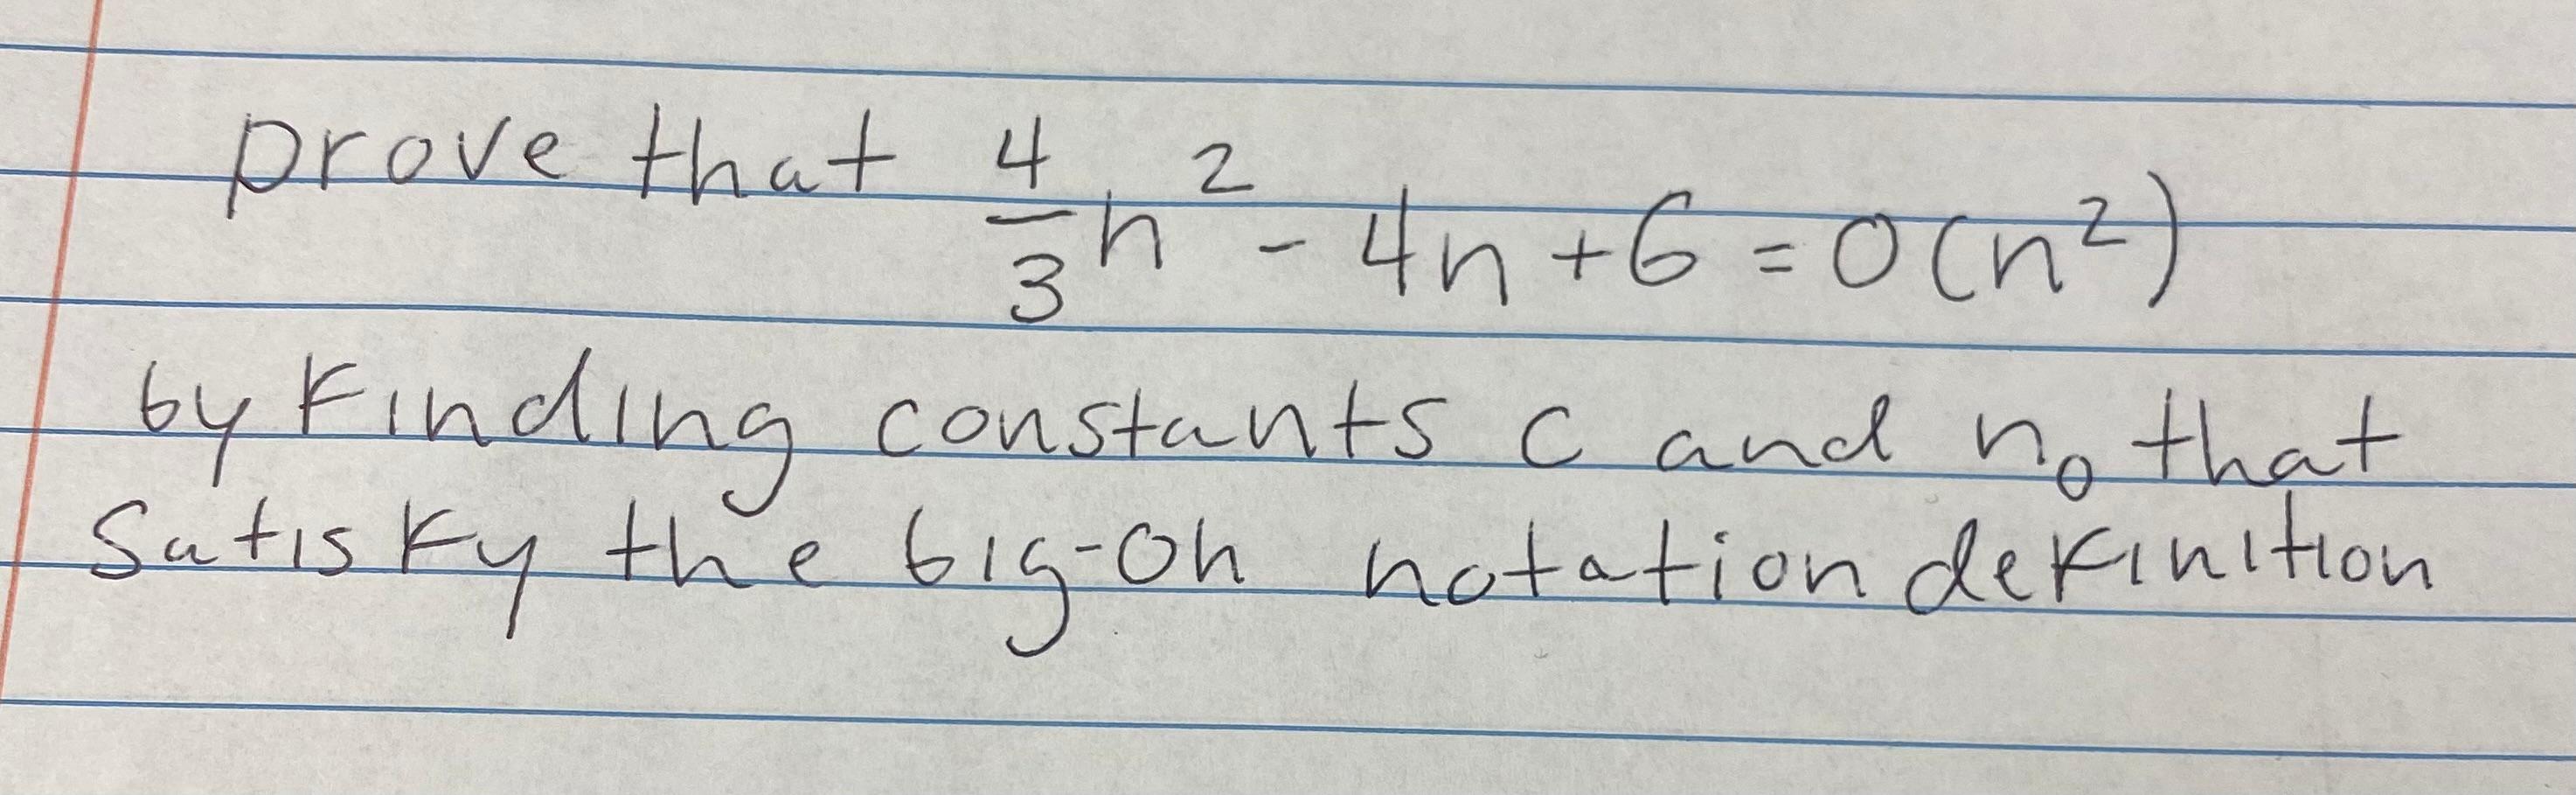 prove that 4/3 n² - 4n + 6 = O(n²)
by Finding constants c and n₀ that
Satisfy the big-Oh notation definition